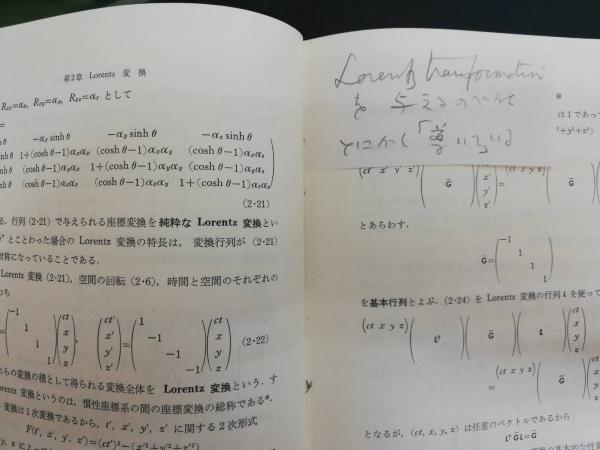 第2章 Lorentz 変 換
R_{zx}=α_x, R_{zy}=α_y, R_{zz}=α_z として
−α_x sinh θ −α_y sinh θ −α_z sinh θ
1+(cosh θ−1)α_xα_x (cosh θ−1)α_xα_y (cosh θ−1)α_xα_z
(cosh θ−1)α_xα_y 1+(cosh θ−1)α_yα_y (cosh θ−1)α_yα_z
(cosh θ−1)α_xα_z (cosh θ−1)α_yα_z 1+(cosh θ−1)α_zα_z
(2·21)
行列 (2·21) で与えられる座標変換を純粋な Lorentz 変換とい
とことわった場合の Lorentz 変換の特長は, 変換行列が (2·21)
対称になっていることである.
Lorentz 変換 (2·21), 空間の回転 (2·6), 時間と空間のそれぞれの
−1 1 1 1 ct x y z , ct′ x′ y′ z′ = 1 −1 −1 −1 ct x y z (2·22)
らの変換の積として得られる変換全体を Lorentz 変換という. す
変換というのは, 慣性座標系の間の座標変換の総称である*.
変換は1次変換であるから, t′, x′, y′, z′ に関する2次形式
F(t′, x′, y′, z′)=(ct′)²−(x′²+y′²+z′²)
Lorentz transformation
を 与えるので
とにかく
は1であって
²+y²+z²)
(ct′ x′ y′ z′) G̃ x′ y′ z′ = (ct x y z) G̃
とあらわす.
G̃= −1 1 1 1
を基本行列とよぶ. (2·24) を Lorentz 変換の行列 L を使って
(ct x y z) Lᵀ G̃ L ct x y z
= (ct x y z) G̃
となるが, (ct, x, y, z) は任意のベクトルであるから
LᵀG̃L=G̃